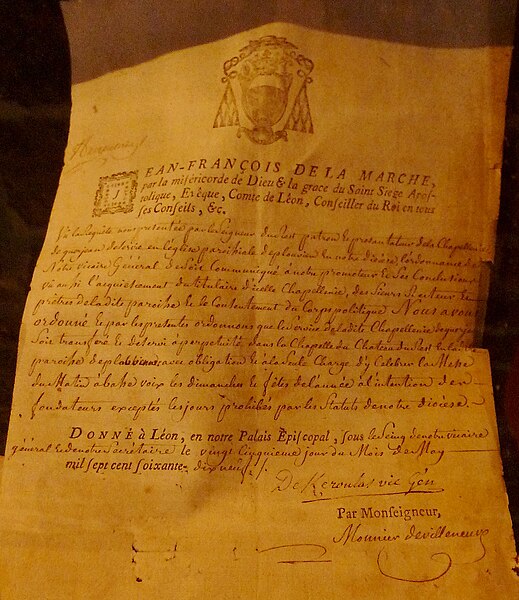 JEAN-FRANÇOIS DE LA MARCHE,
par la miséricorde de Dieu & la grace du Saint Siege Apos-
tolique, Evêque, Comte de Léon, Conseiller du Roi en tous
ses Conseils, &c.
Vû la Requête à nous presentée par le Seigneur du Post patron et presentateur de la Chapellenie
de deservie en l'église paroichiale de plouvien en notre diocese l'ordonnance de
Notre vicaire Général de Soit Communiqué à notre promoteur et Ses Conclusions
vû aussi l'acquiescement du titulaire d'icelle Chapellenie, des Sieurs Recteur et
prêtres de la dite paroisse et le Consentement du Corps politique Nous avons
ordonné et par les presentes ordonnons que le service de la dite Chapellenie
Soit transferé et deservi à perpetuité dans la Chapelle du Chateau du Post en la dite
paroisse de plouvien avec obligation et à la Seule Charge d'y Celebrer la Messe
du Matin à basse voix les dimanches et fêtes de l'année à l'intention des
fondateurs exceptés les jours prohibés par les Statuts de notre diocèse.
DONNÉ à Léon, en notre Palais Épiscopal, sous le Seing de notre vicaire
général et de notre Secretaire le vingt Cinquieme jour du Mois de May
mil sept cent soixante-dix neuf./.
De Keroulas vic Gén
Par Monseigneur,
Monnier de villeneuve